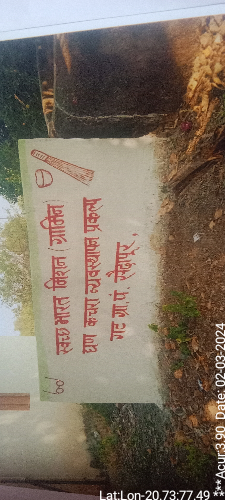 स्वच्छ भारत मिशन (ग्रामिण)
घण कचरा व्यवस्थापन प्रकल्प
गट ग्रा.पं. सेंद्रापुर.
Lat:Lon-20.73:77.49
***Acur:3.90 Date: 02-03-2024